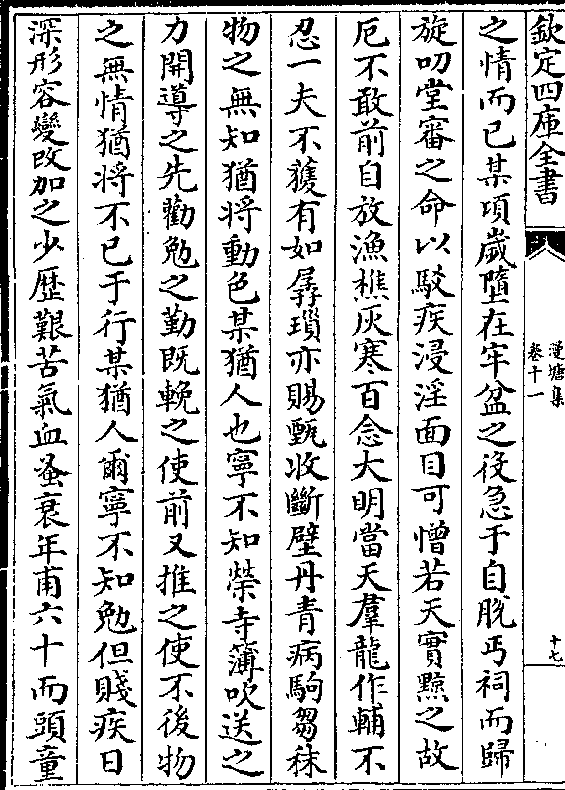 欽定四庫全書
漫塘集
卷十一
十七
之情而已某頃嵗墮在牢盆之役急于自脱丐祠而歸
旋叨堂審之命以駁疾浸淫面目可憎若天實黥之故
厄不敢前自放漁樵灰寒百念大明當天羣龍作輔不
忍一夫不獲有如孱瑣亦賜甄收斷壁丹青病駒芻秣
物之無知猶將動色某猶人也寧不知榮寺簿吹送之
力開導之先勸勉之勤既輓之使前又推之使不後物
之無情猶將不已于行某猶人爾寧不知勉但賤疾日
深形容變改加之少歴艱苦氣血蚤衰年甫六十而頭童